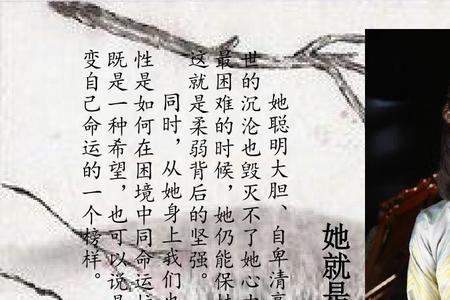 她就是
她聪明大胆、自卑清高
世的沉沦也毁灭不了她心中
最困难的时候，她仍能保持
这就是柔弱背后的坚强。
同时，从她身上我们也
性是如何在困境中同命运抗
既是一种希望，也可以说是
变自己命运的一个榜样。